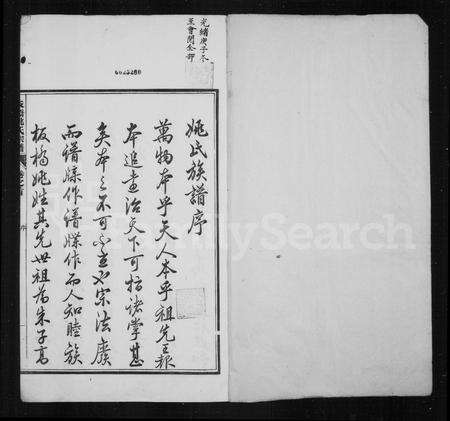 光緒庚子冬
至會閲全部
姚氏族譜序
萬物本乎天人本乎祖先王報
本追遠治天下可指諸掌甚
矣本之不可不重也宗法廢
而譜牒作譜牒作而人知睦族
板橋姚姓其先世祖為朱子高
序
FamilySearch